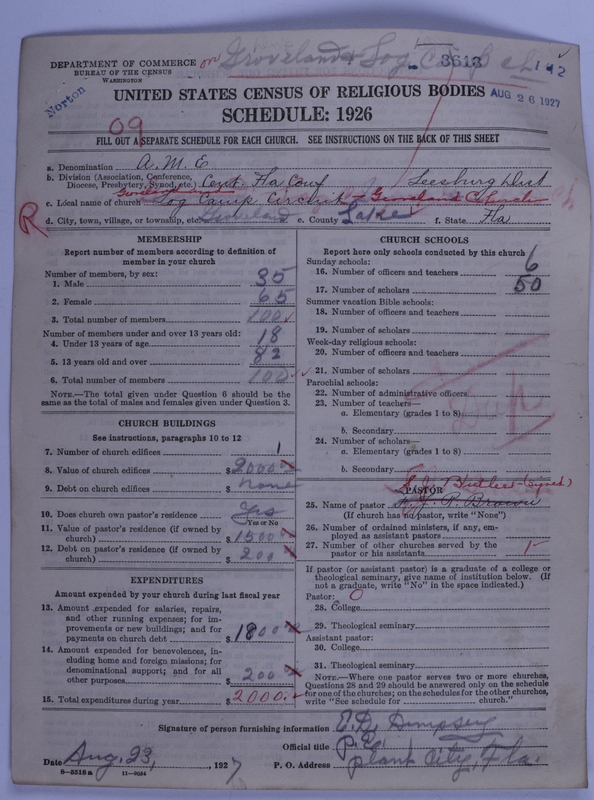 DEPARTMENT OF COMMERCE on Groveland & Log Camp Ch 3613 142
BUREAU OF THE CENSUS
WASHINGTON
Norton
UNITED STATES CENSUS OF RELIGIOUS BODIES AUG 26 1927
SCHEDULE: 1926
09
FILL OUT A SEPARATE SCHEDULE FOR EACH CHURCH. SEE INSTRUCTIONS ON THE BACK OF THIS SHEET
a. Denomination A. M. E
b. Division (Association, Conference, Diocese, Presbytery, Synod, etc.) Cent. Fla Conf Leesburg Dist
c. Local name of church Log Camp Circuit - Groveland Church
R d. City, town, village, or township, etc. Groveland e. County Lake f. State Fla
MEMBERSHIP
Report number of members according to definition of
member in your church
Number of members, by sex:
1. Male 35
2. Female 65
3. Total number of members 100
Number of members under and over 13 years old:
4. Under 13 years of age 18
5. 13 years old and over 82
6. Total number of members 100
NOTE.—The total given under Question 6 should be the
same as the total of males and females given under Question 3.
CHURCH BUILDINGS
See instructions, paragraphs 10 to 12
7. Number of church edifices 1
8. Value of church edifices $ 2000
9. Debt on church edifices $ None
10. Does church own pastor's residence Yes
Yes or No
11. Value of pastor's residence (if owned by
church) $ 1500
12. Debt on pastor's residence (if owned by
church) $ 200
EXPENDITURES
Amount expended by your church during last fiscal year
13. Amount expended for salaries, repairs,
and other running expenses; for im-
provements or new buildings; and for
payments on church debt $ 1800
14. Amount expended for benevolences, in-
cluding home and foreign missions; for
denominational support; and for all
other purposes $ 200
15. Total expenditures during year $ 2000
CHURCH SCHOOLS
Report here only schools conducted by this church
Sunday schools:
16. Number of officers and teachers 6
17. Number of scholars 50
Summer vacation Bible schools:
18. Number of officers and teachers
19. Number of scholars
Week-day religious schools:
20. Number of officers and teachers
21. Number of scholars
Parochial schools:
22. Number of administrative officers
23. Number of teachers—
a. Elementary (grades 1 to 8)
b. Secondary
24. Number of scholars—
a. Elementary (grades 1 to 8)
b. Secondary
PASTOR
Butler (signed)
25. Name of pastor P. Brown
(If church has no pastor, write "None")
26. Number of ordained ministers, if any, em-
ployed as assistant pastors
27. Number of other churches served by the
pastor or his assistants 1
If pastor (or assistant pastor) is a graduate of a college or
theological seminary, give name of institution below. (If
not a graduate, write "No" in the space indicated.)
Pastor: 0
28. College
29. Theological seminary
Assistant pastor:
30. College
31. Theological seminary
NOTE.—Where one pastor serves two or more churches,
Questions 28 and 29 should be answered only on the schedule
for one of the churches; on the schedules for the other churches,
write "See schedule for church."
Signature of person furnishing information E. D. Dempsey
Official title P. E.
Date Aug. 23, 1927 P. O. Address Plant City, Fla.
8-5518a 11-9034